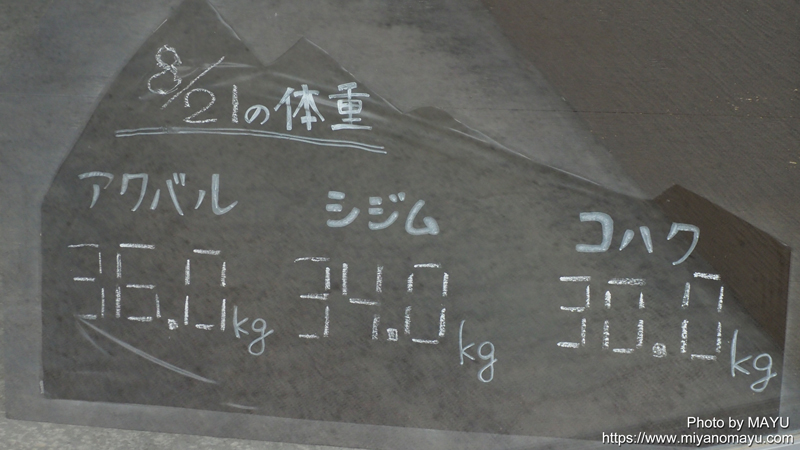 8/21の体重
アクバル
36.0kg
シジム
34.0kg
コハク
30.0kg
Photo by MAYU
https://www.miyanomayu.com/